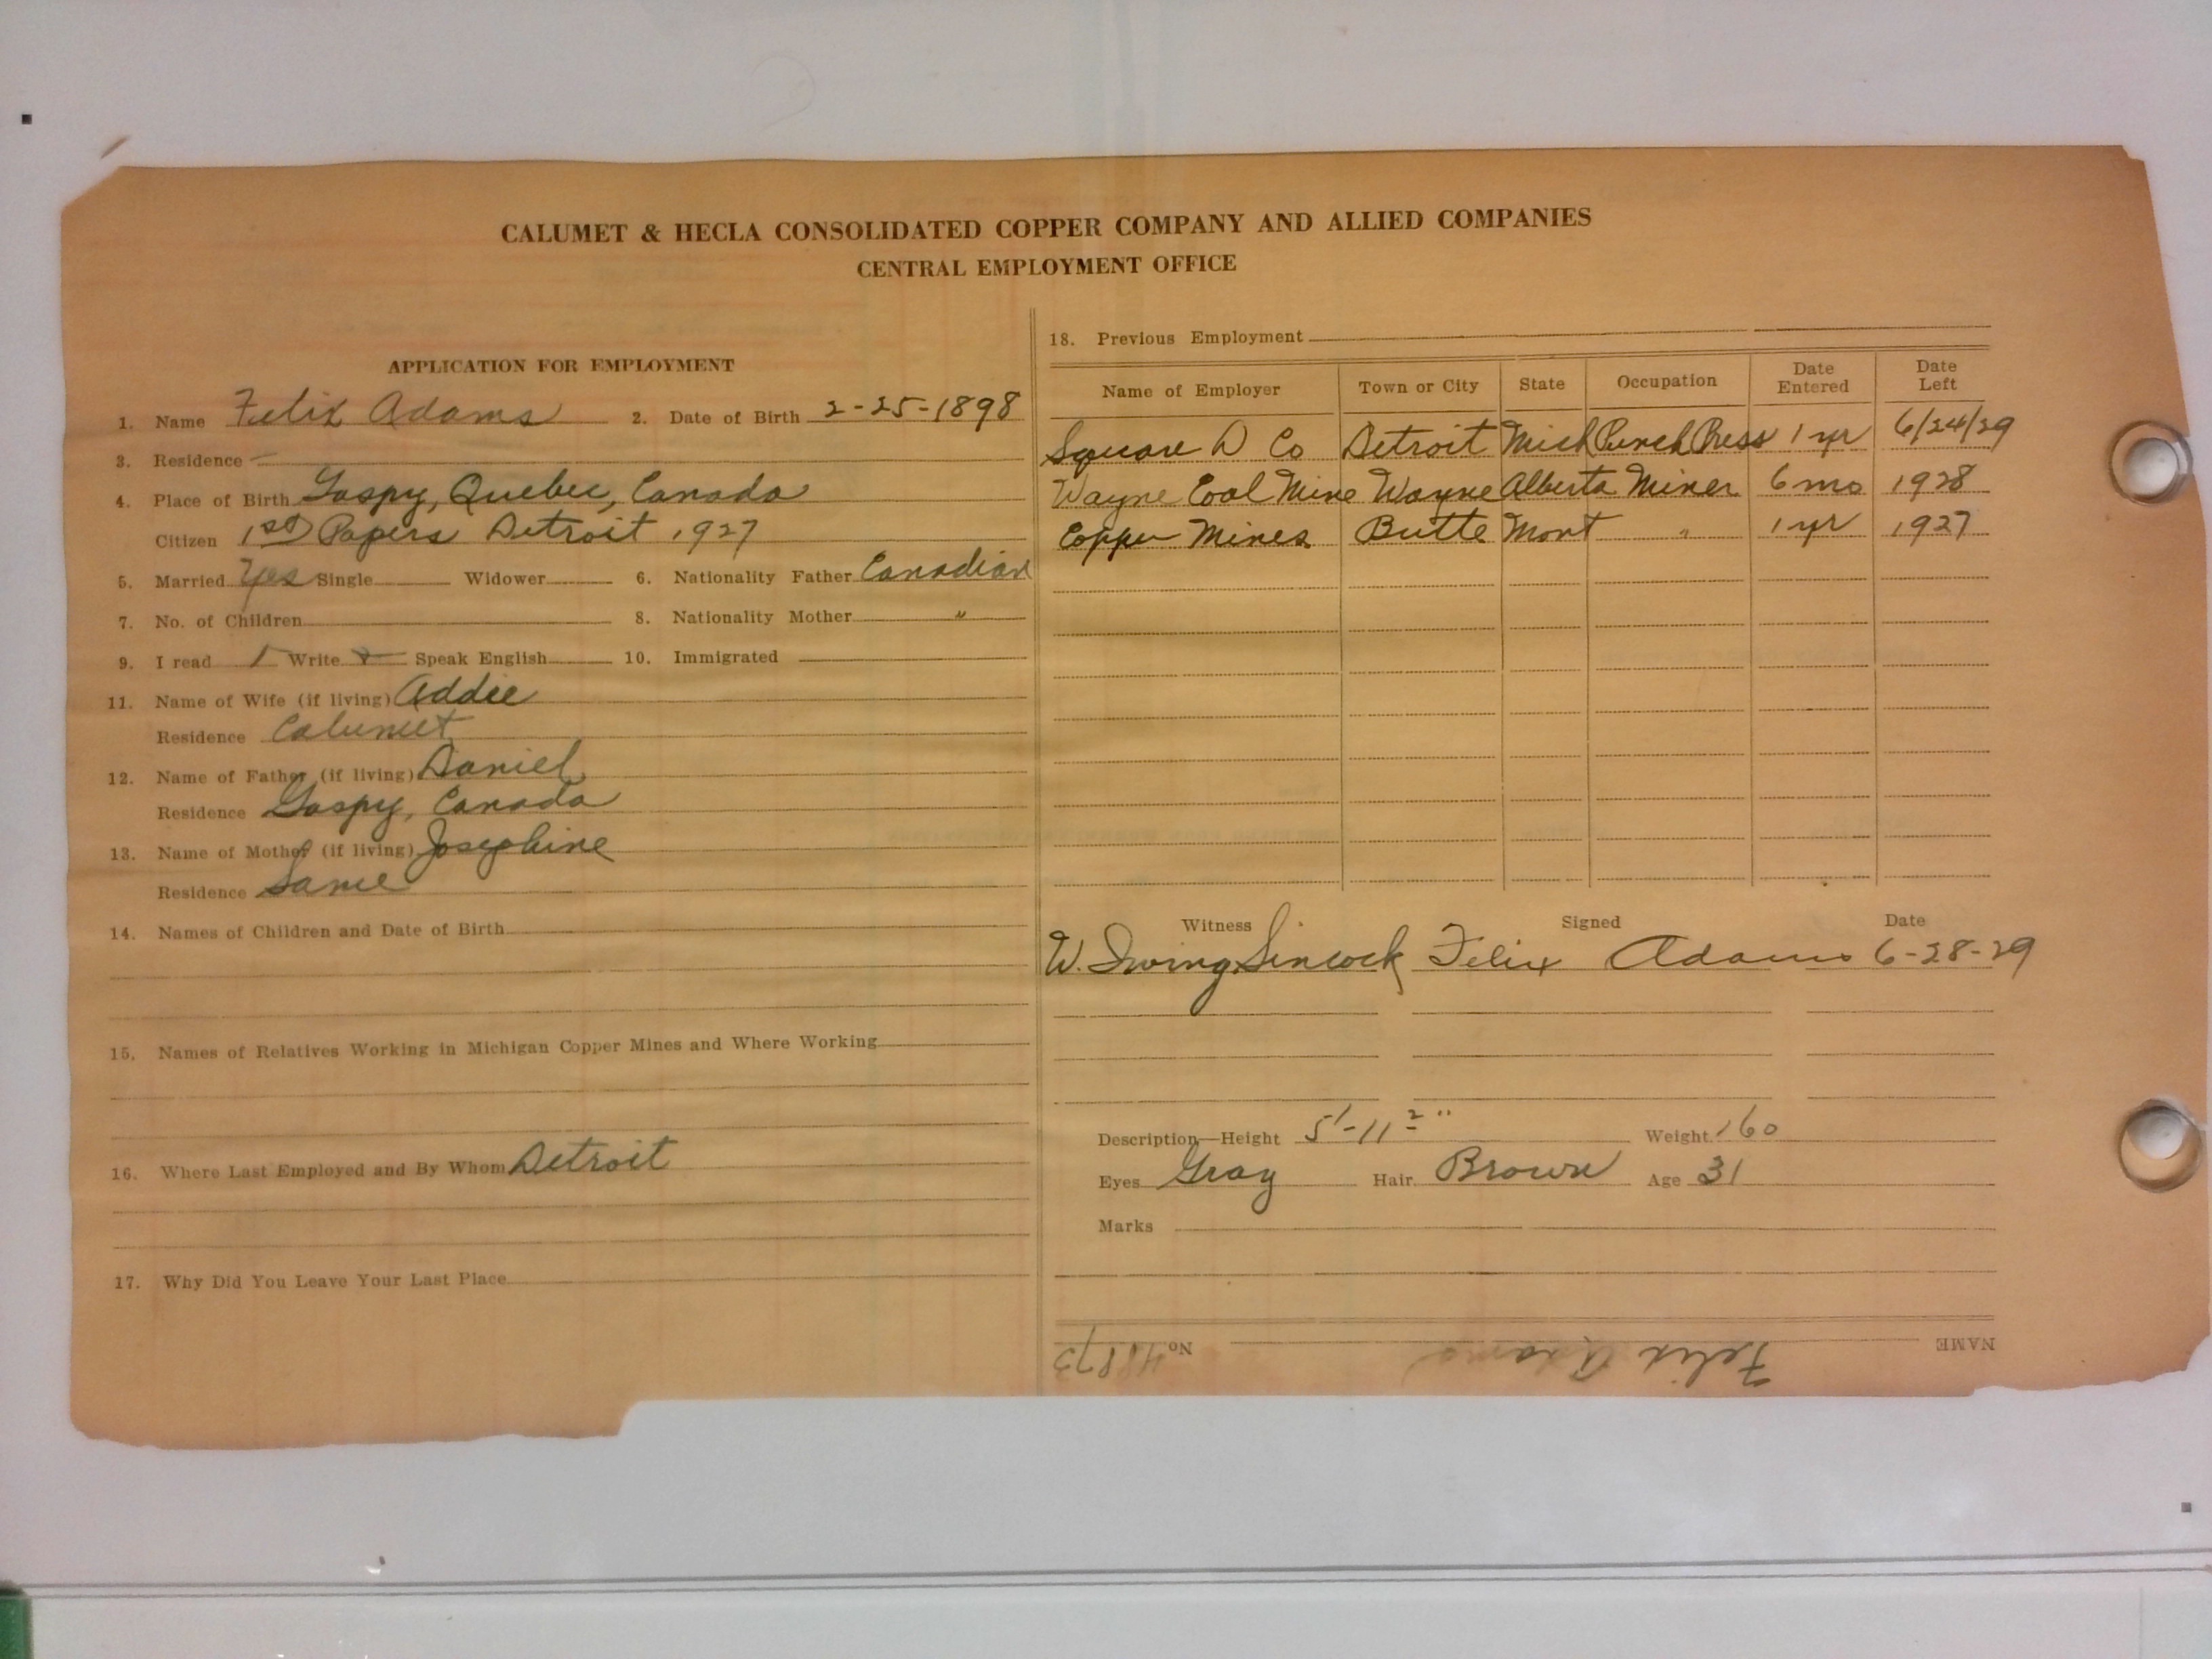 CALUMET & HECLA CONSOLIDATED COPPER COMPANY AND ALLIED COMPANIES
CENTRAL EMPLOYMENT OFFICE
APPLICATION FOR EMPLOYMENT
1. Name Felix Adams 2. Date of Birth 2-25-1898
3. Residence
4. Place of Birth Gaspy, Quebec, Canada
Citizen 1st Papers Detroit 1927
5. Married Yes Single Widower 6. Nationality Father Canadian
7. No. of Children 8. Nationality Mother "
9. I read Write Speak English 10. Immigrated
11. Name of Wife (if living) Addie
Residence Calumet
12. Name of Father (if living) Daniel
Residence Gaspy, Canada
13. Name of Mother (if living) Josephine
Residence Same
14. Names of Children and Date of Birth
15. Names of Relatives Working in Michigan Copper Mines and Where Working
16. Where Last Employed and By Whom Detroit
17. Why Did You Leave Your Last Place
18. Previous Employment
Name of Employer Town or City State Occupation Date Entered Date Left
Square D Co Detroit Mich Punch Press 1 yr 6/24/29
Wayne Coal Mine Wayne Alberta Miner 6 mo 1928
Copper Mines Butte Mont " 1 yr 1927
Witness Signed Date
W. Irving Sincock Felix Adams 6-28-29
Description—Height 5'-11 2" Weight 160
Eyes Gray Hair Brown Age 31
Marks
NAME Felix Adams No.